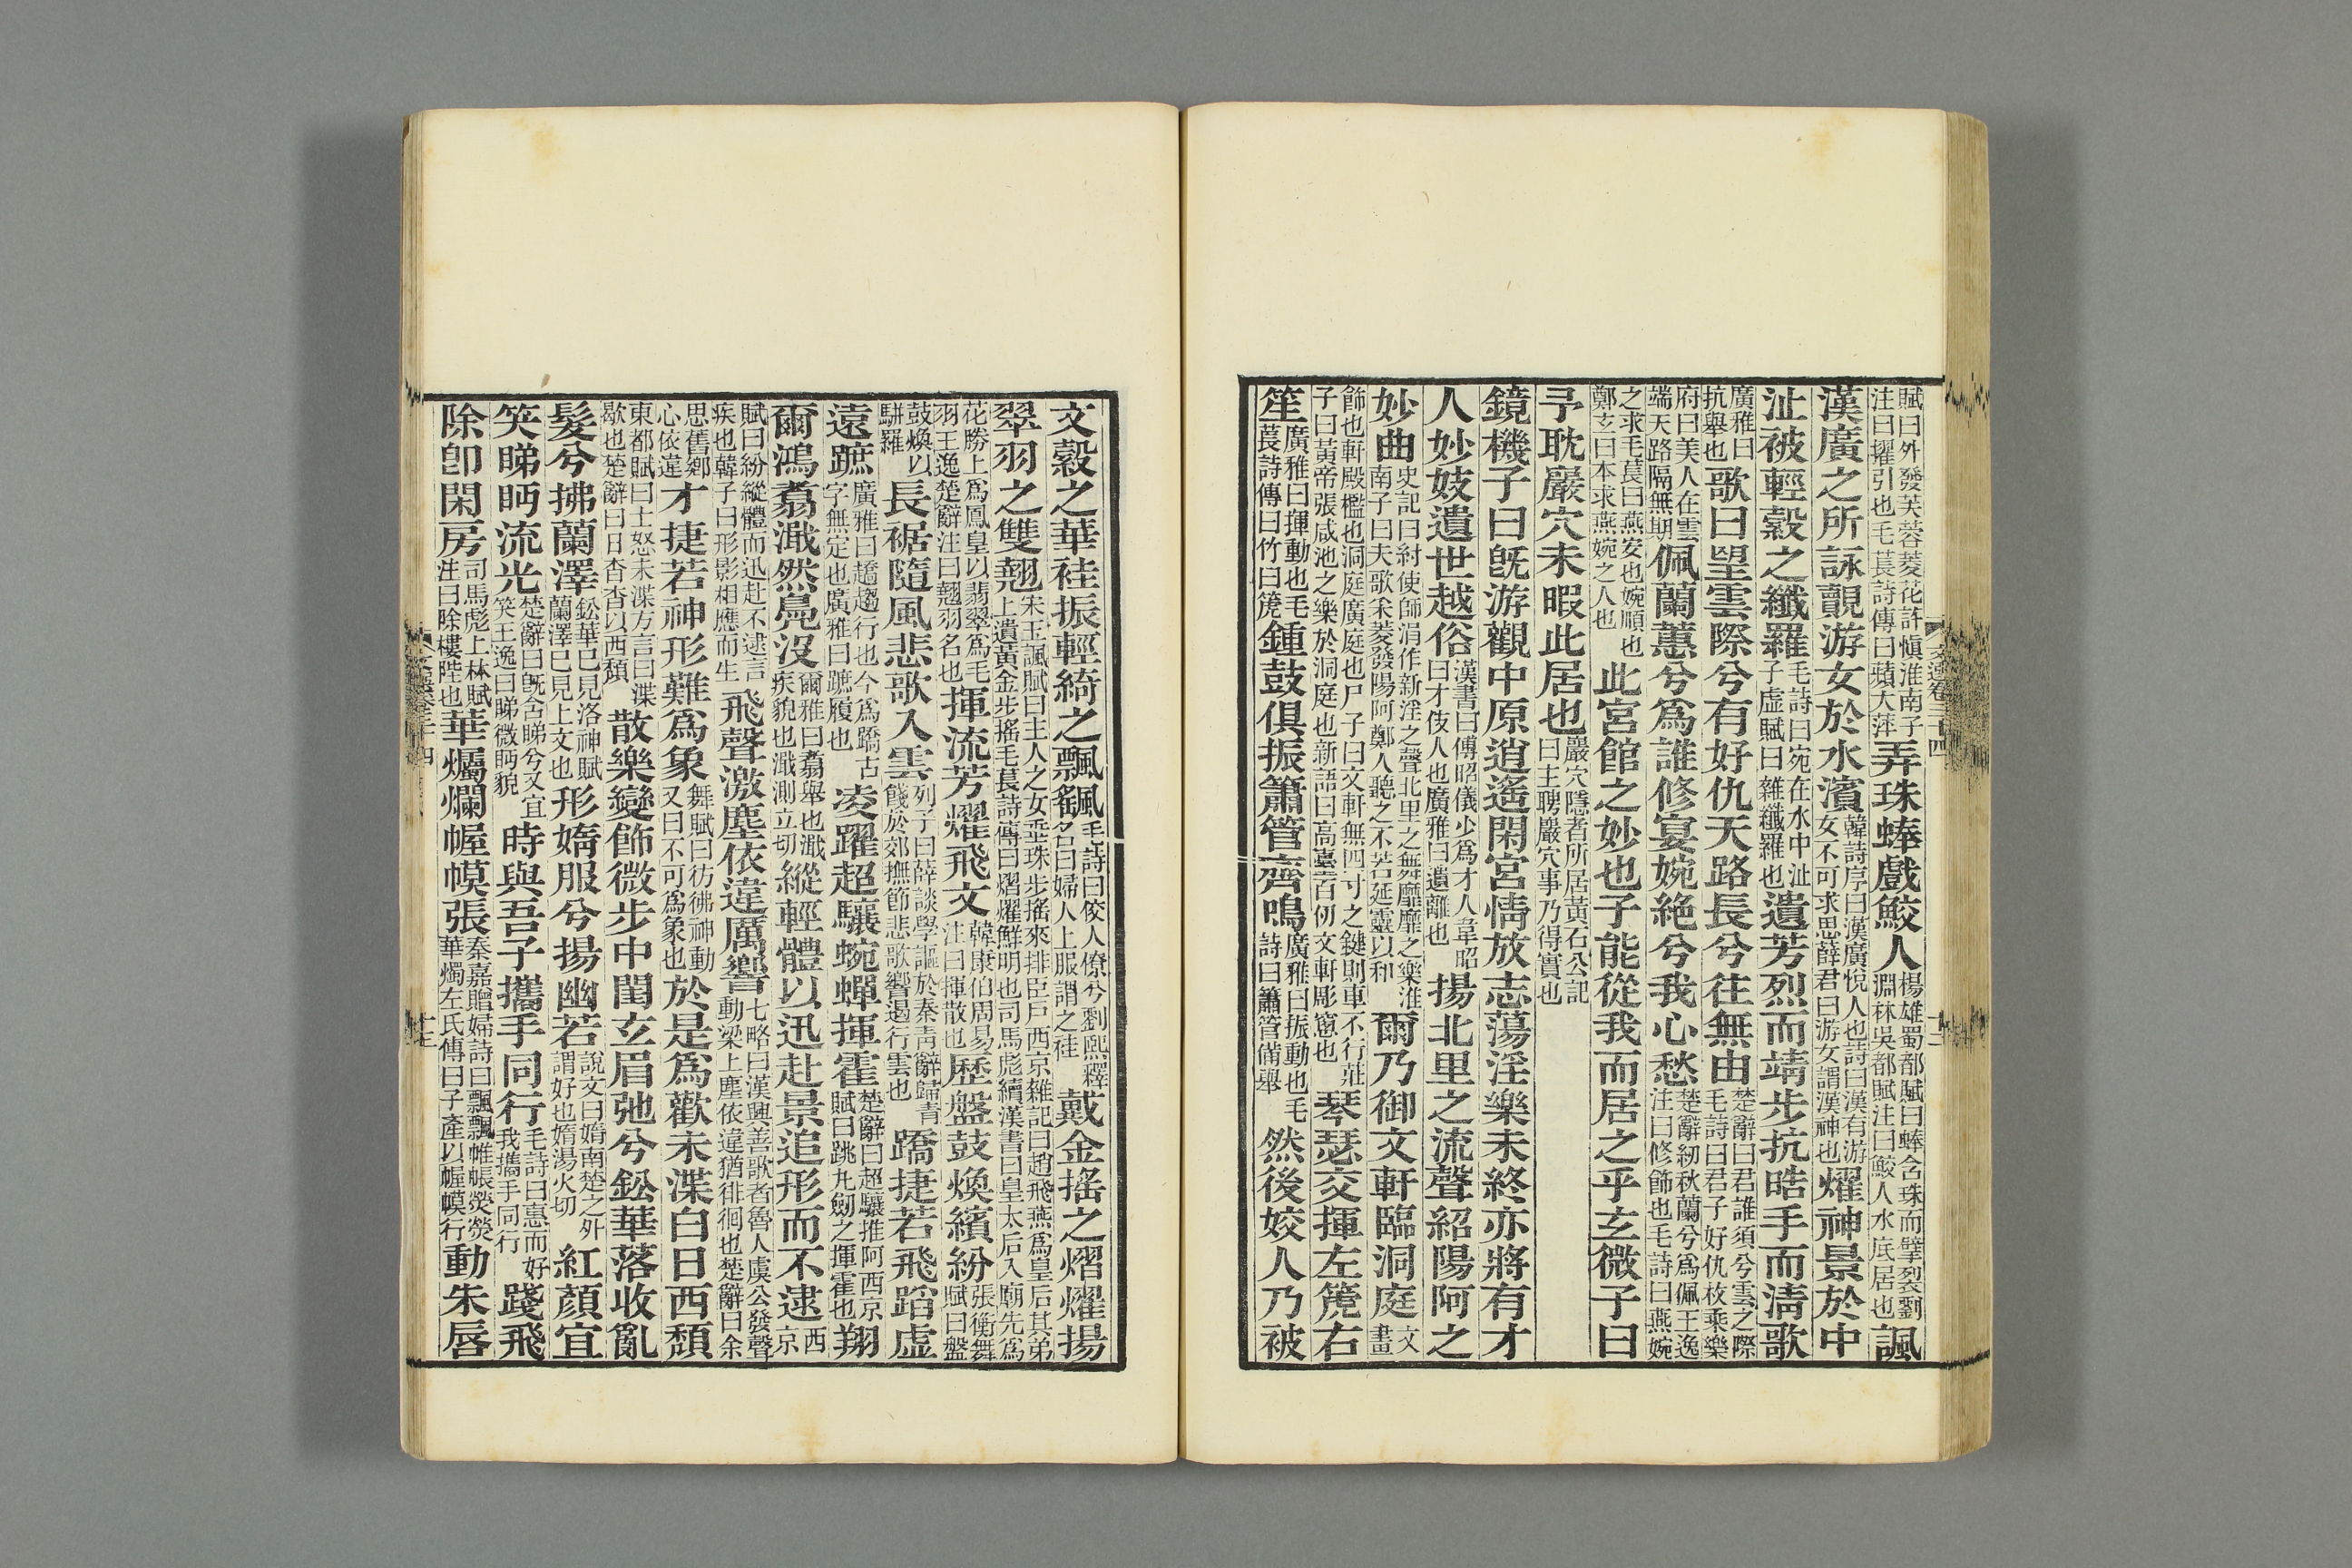 賦曰外發芙蓉菱花許愼淮南子注曰擢引也毛萇詩傳曰蘋大萍弄珠蜯戲鮫人楊雄蜀都賦曰蜯含珠而擘裂劉淵林吳都賦注曰鮫人水底居也諷
漢廣之所詠覿游女於水濱韓詩序曰漢廣悅人也詩曰漢有游女不可求思薛君曰游女謂漢神也燿神景於中
沚被輕縠之纖羅毛詩曰宛在水中沚子虛賦曰雜纖羅也遺芳烈而靖步抗晧手而清歌
廣雅曰抗舉也歌曰望雲際兮有好仇天路長兮往無由楚辭曰君誰須兮雲之際毛詩曰君子好仇枚乘樂
府曰美人在雲端天路隔無期佩蘭蕙兮爲誰修宴婉絕兮我心愁楚辭紉秋蘭兮爲佩王逸注曰修飾也毛詩曰燕婉
之求毛萇曰燕安也婉順也鄭玄曰本求燕婉之人也此宮館之妙也子能從我而居之乎玄微子曰
予耽巖穴未暇此居也巖穴隱者所居黃石公記曰主聘巖穴事乃得實也
鏡機子曰旣游觀中原逍遙閑宮情放志蕩淫樂未終亦將有才
人妙妓遺世越俗漢書曰傅昭儀少爲才人韋昭曰才伎人也廣雅曰遺離也揚北里之流聲紹陽阿之
妙曲史記曰紂使師涓作新淫之聲北里之舞靡靡之樂淮南子曰夫歌采菱發陽阿鄭人聽之不若延靈以和爾乃御文軒臨洞庭文畫
飾也軒殿檻也洞庭廣庭也尸子曰文軒無四寸之鍵則車不行莊子曰黃帝張咸池之樂於洞庭也新語曰高臺百仞文軒彫窻也琴瑟交揮左箎右
笙廣雅曰揮動也毛萇詩傳曰竹曰箎鍾鼓俱振簫管齊鳴廣雅曰振動也毛詩曰簫管備舉然後姣人乃被
文縠之華袿振輕綺之飄颻毛詩曰佼人僚兮劉熙釋名曰婦人上服謂之袿戴金搖之熠燿揚
翠羽之雙翹宋玉諷賦曰主人之女垂珠步搖來排臣戶西京雜記曰趙飛燕爲皇后其弟上遺黃金步搖毛萇詩傳曰熠燿鮮明也司馬彪續漢書曰皇太后入廟先爲
花勝上爲鳳皇以翡翠爲毛羽王逸楚辭注曰翹羽名也揮流芳燿飛文韓康伯周易注曰揮散也歷盤鼓煥繽紛張衡舞賦曰盤
鼓煥以駢羅長裾隨風悲歌入雲列子曰薛談學謳於秦青辭歸青餞於郊撫節悲歌響遏行雲也蹻捷若飛蹈虛
遠蹠廣雅曰趫趫行也今爲蹻古字無定也廣雅曰蹠履也凌躍超驤蜿蟬揮霍楚辭曰超驤推阿西京賦曰跳丸劒之揮霍也翔
爾鴻翥濈然鳧沒爾雅曰翥舉也濈疾貌也濈測立切縱輕體以迅赴景追形而不逮西京
賦曰紛縱體而迅赴不逮言疾也韓子曰形影相應而生飛聲激塵依違厲響七略曰漢興善歌者魯人虞公發聲動梁上塵依違猶徘徊也楚辭曰余
思舊鄉心依違才捷若神形難爲象舞賦曰彷彿神動又曰不可爲象也於是爲歡未渫白日西頹
東都賦曰土怒未渫方言曰渫歇也楚辭曰日杳杳以西頹散樂變飾微步中閨玄眉弛兮鈆華落收亂
髮兮拂蘭澤鈆華已見洛神賦蘭澤已見上文也形媠服兮揚幽若說文曰媠南楚之外謂好也媠湯火切紅顏宜
笑睇眄流光楚辭曰旣含睇兮又宜笑王逸曰睇微眄貌時與吾子攜手同行毛詩曰惠而好我攜手同行踐飛
除卽閑房司馬彪上林賦注曰除樓陛也華爥爛幄幙張秦嘉贈婦詩曰飄飄帷帳熒熒華燭左氏傳曰子產以幄幙行動朱唇